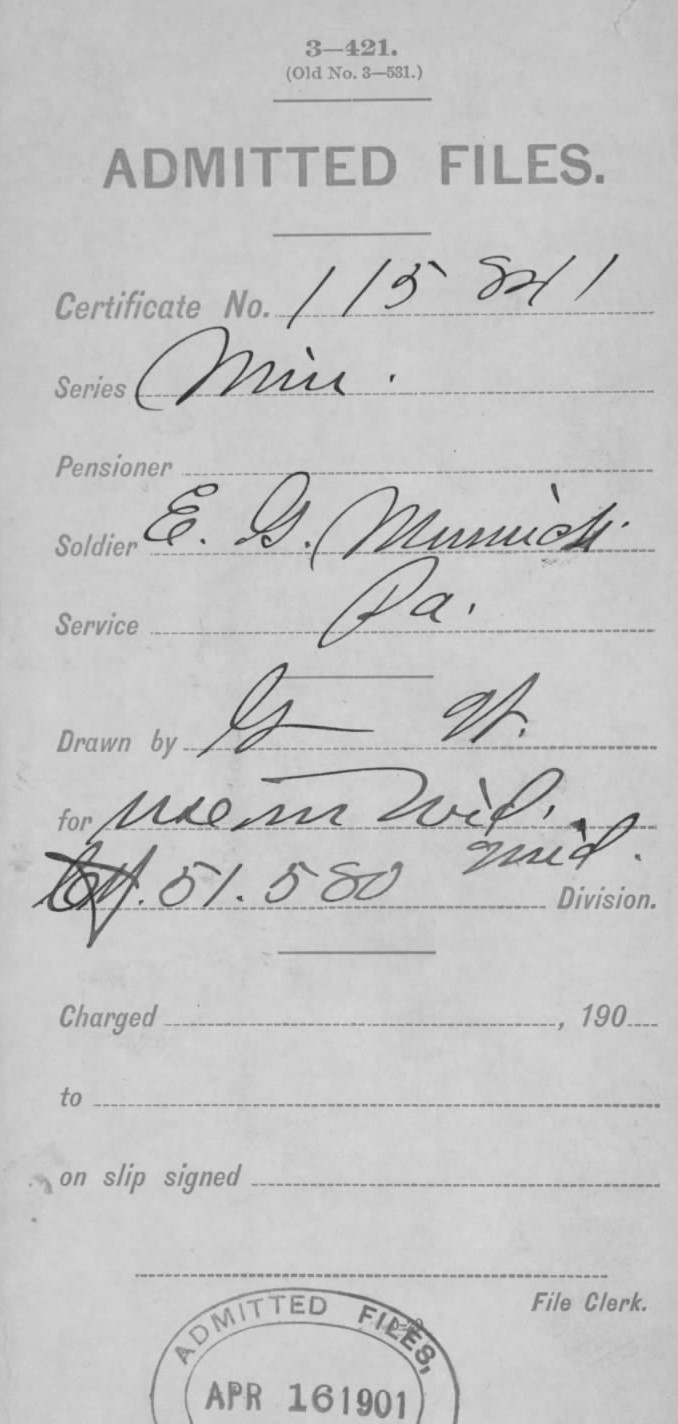 3—421.
(Old No. 3—531.)
ADMITTED FILES.
Certificate No. 115 841
Series Min.
Pensioner
Soldier E. G. Minnick
Service Pa.
Drawn by G W.
for use in Wid.
Ctf. 51.580 Mid. Division.
Charged , 190
to
on slip signed
File Clerk.
ADMITTED FILES,
APR 16 1901